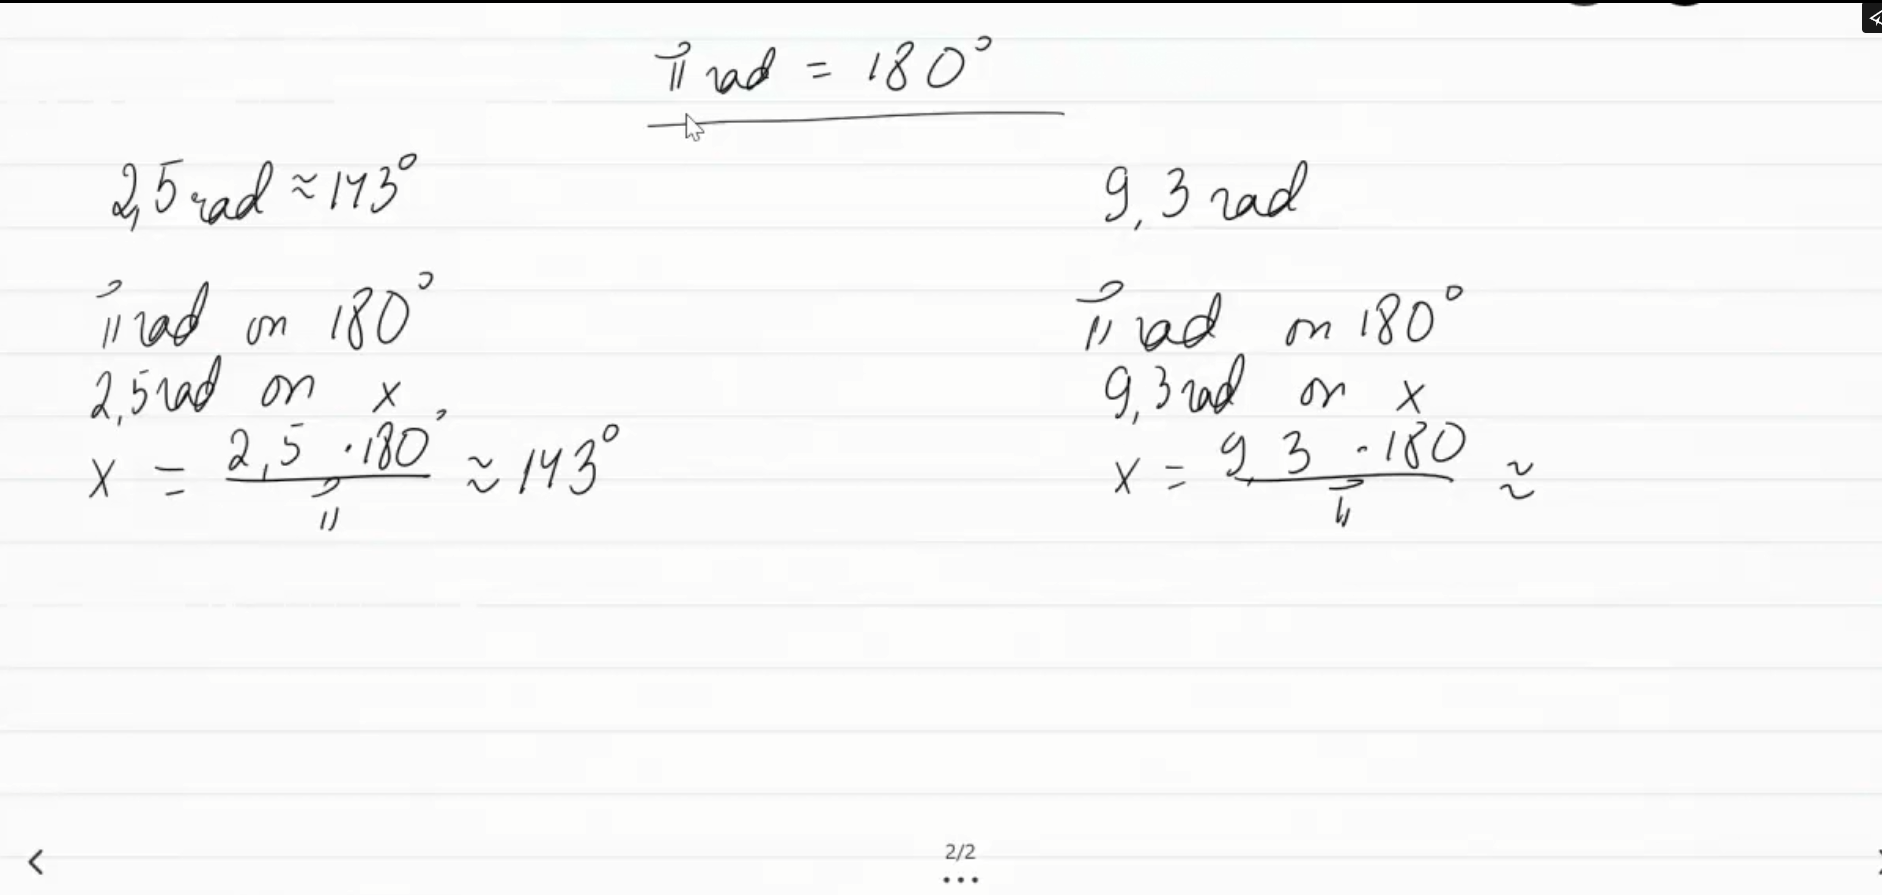 π rad = 180°
2,5 rad ≈ 143°
π rad on 180°
2,5 rad on x
x = 2,5 · 180° / π ≈ 143°
9,3 rad
π rad on 180°
9,3 rad on x
x = 9,3 · 180 / π ≈
2/2